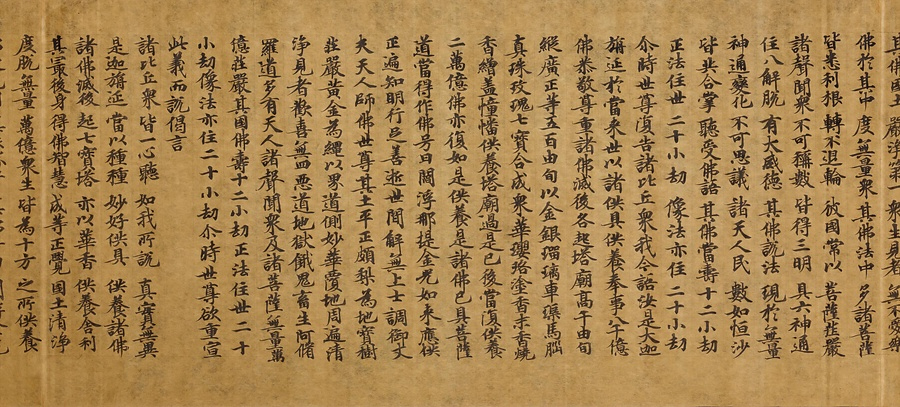 其佛國土 嚴淨第一 衆生見者 無不愛樂
佛於其中 度無量衆 其佛法中 多諸菩薩
皆悉利根 轉不退輪 彼國常以 菩薩莊嚴
諸聲聞衆 不可稱數 皆得三明 具六神通
住八解脫 有大威德 其佛說法 現於無量
神通變化 不可思議 諸天人民 數如恒沙
皆共合掌 聽受佛語 其佛當壽 十二小劫
正法住世 二十小劫 像法亦住 二十小劫
尒時世尊復告諸比丘衆我今語汝是大迦
旃延於當來世以諸供具供養奉事八千億
佛恭敬尊重諸佛滅後各起塔廟高千由旬
縱廣正等五百由旬以金銀瑠璃車璖馬瑙
真珠玫瑰七寶合成衆華瓔珞塗香末香燒
香繒蓋幢幡供養塔廟過是已後當復供養
二萬億佛亦復如是供養是諸佛已具菩薩
道當得作佛号曰閻浮那提金光如來應供
正遍知明行足善逝世間解無上士調御丈
夫天人師佛世尊其土平正頗梨為地寶樹
莊嚴黃金為繩以界道側妙華覆地周遍清
淨見者歡喜無四惡道地獄餓鬼畜生阿脩
羅道多有天人諸聲聞衆及諸菩薩無量萬
億莊嚴其國佛壽十二小劫正法住世二十
小劫像法亦住二十小劫尒時世尊欲重宣
此義而說偈言
諸比丘衆 皆一心聽 如我所說 真實無異
是迦旃延 當以種種 妙好供具 供養諸佛
諸佛滅後 起七寶塔 亦以華香 供養舍利
其最後身 得佛智慧 成等正覺 國土清淨
度脫無量 萬億衆生 皆為十方 之所供養